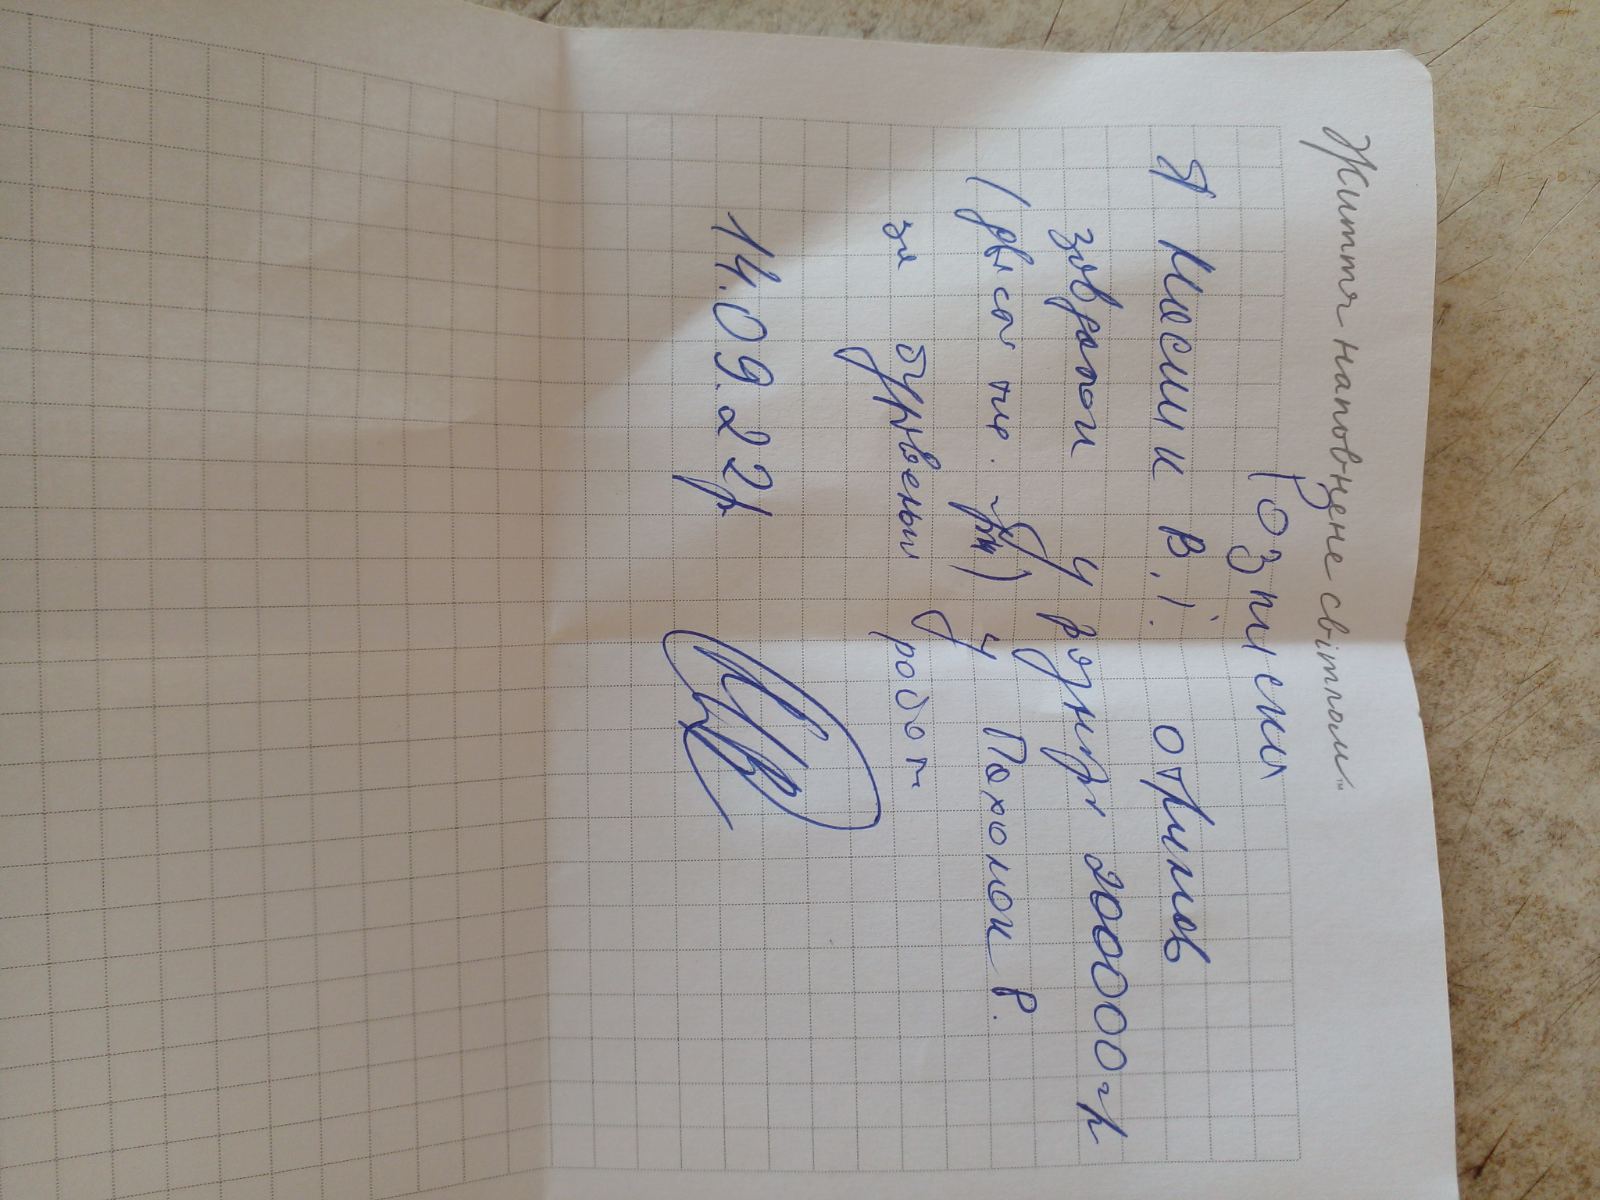 Життя наповнене світлом™
Розписка
Я Носик В.і. отримав
завдаток у розмірі 200000 гр
(двісти тис. грн) у Пахомок Р.
за будівельні роботи
14.09.22р